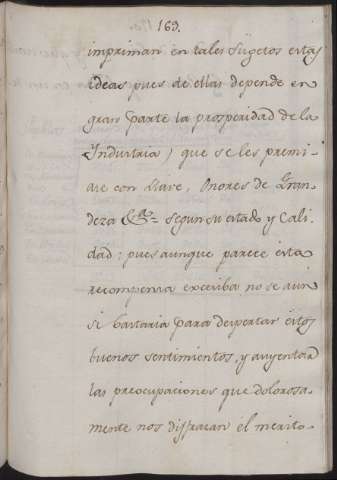 163.
impriman en tales sugetos estas
ideas pues de ellas depende en
gran parte la prosperidad de la
Industria) que se les premi-
are con Llave, Onores de Gran-
deza &a. segun su estado y Cali
dad: pues aunque parece esta
recompensa excesiba no se aun
si bastaria para despertar estos
buenos sentimientos, y auyentar
las preocupaciones que dolorosa-
mente nos disfrazan el merito